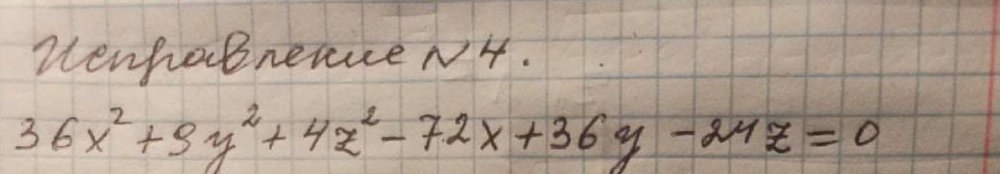 Исправление №4.
36x² + 9y² + 4z² - 72x + 36y - 24z = 0